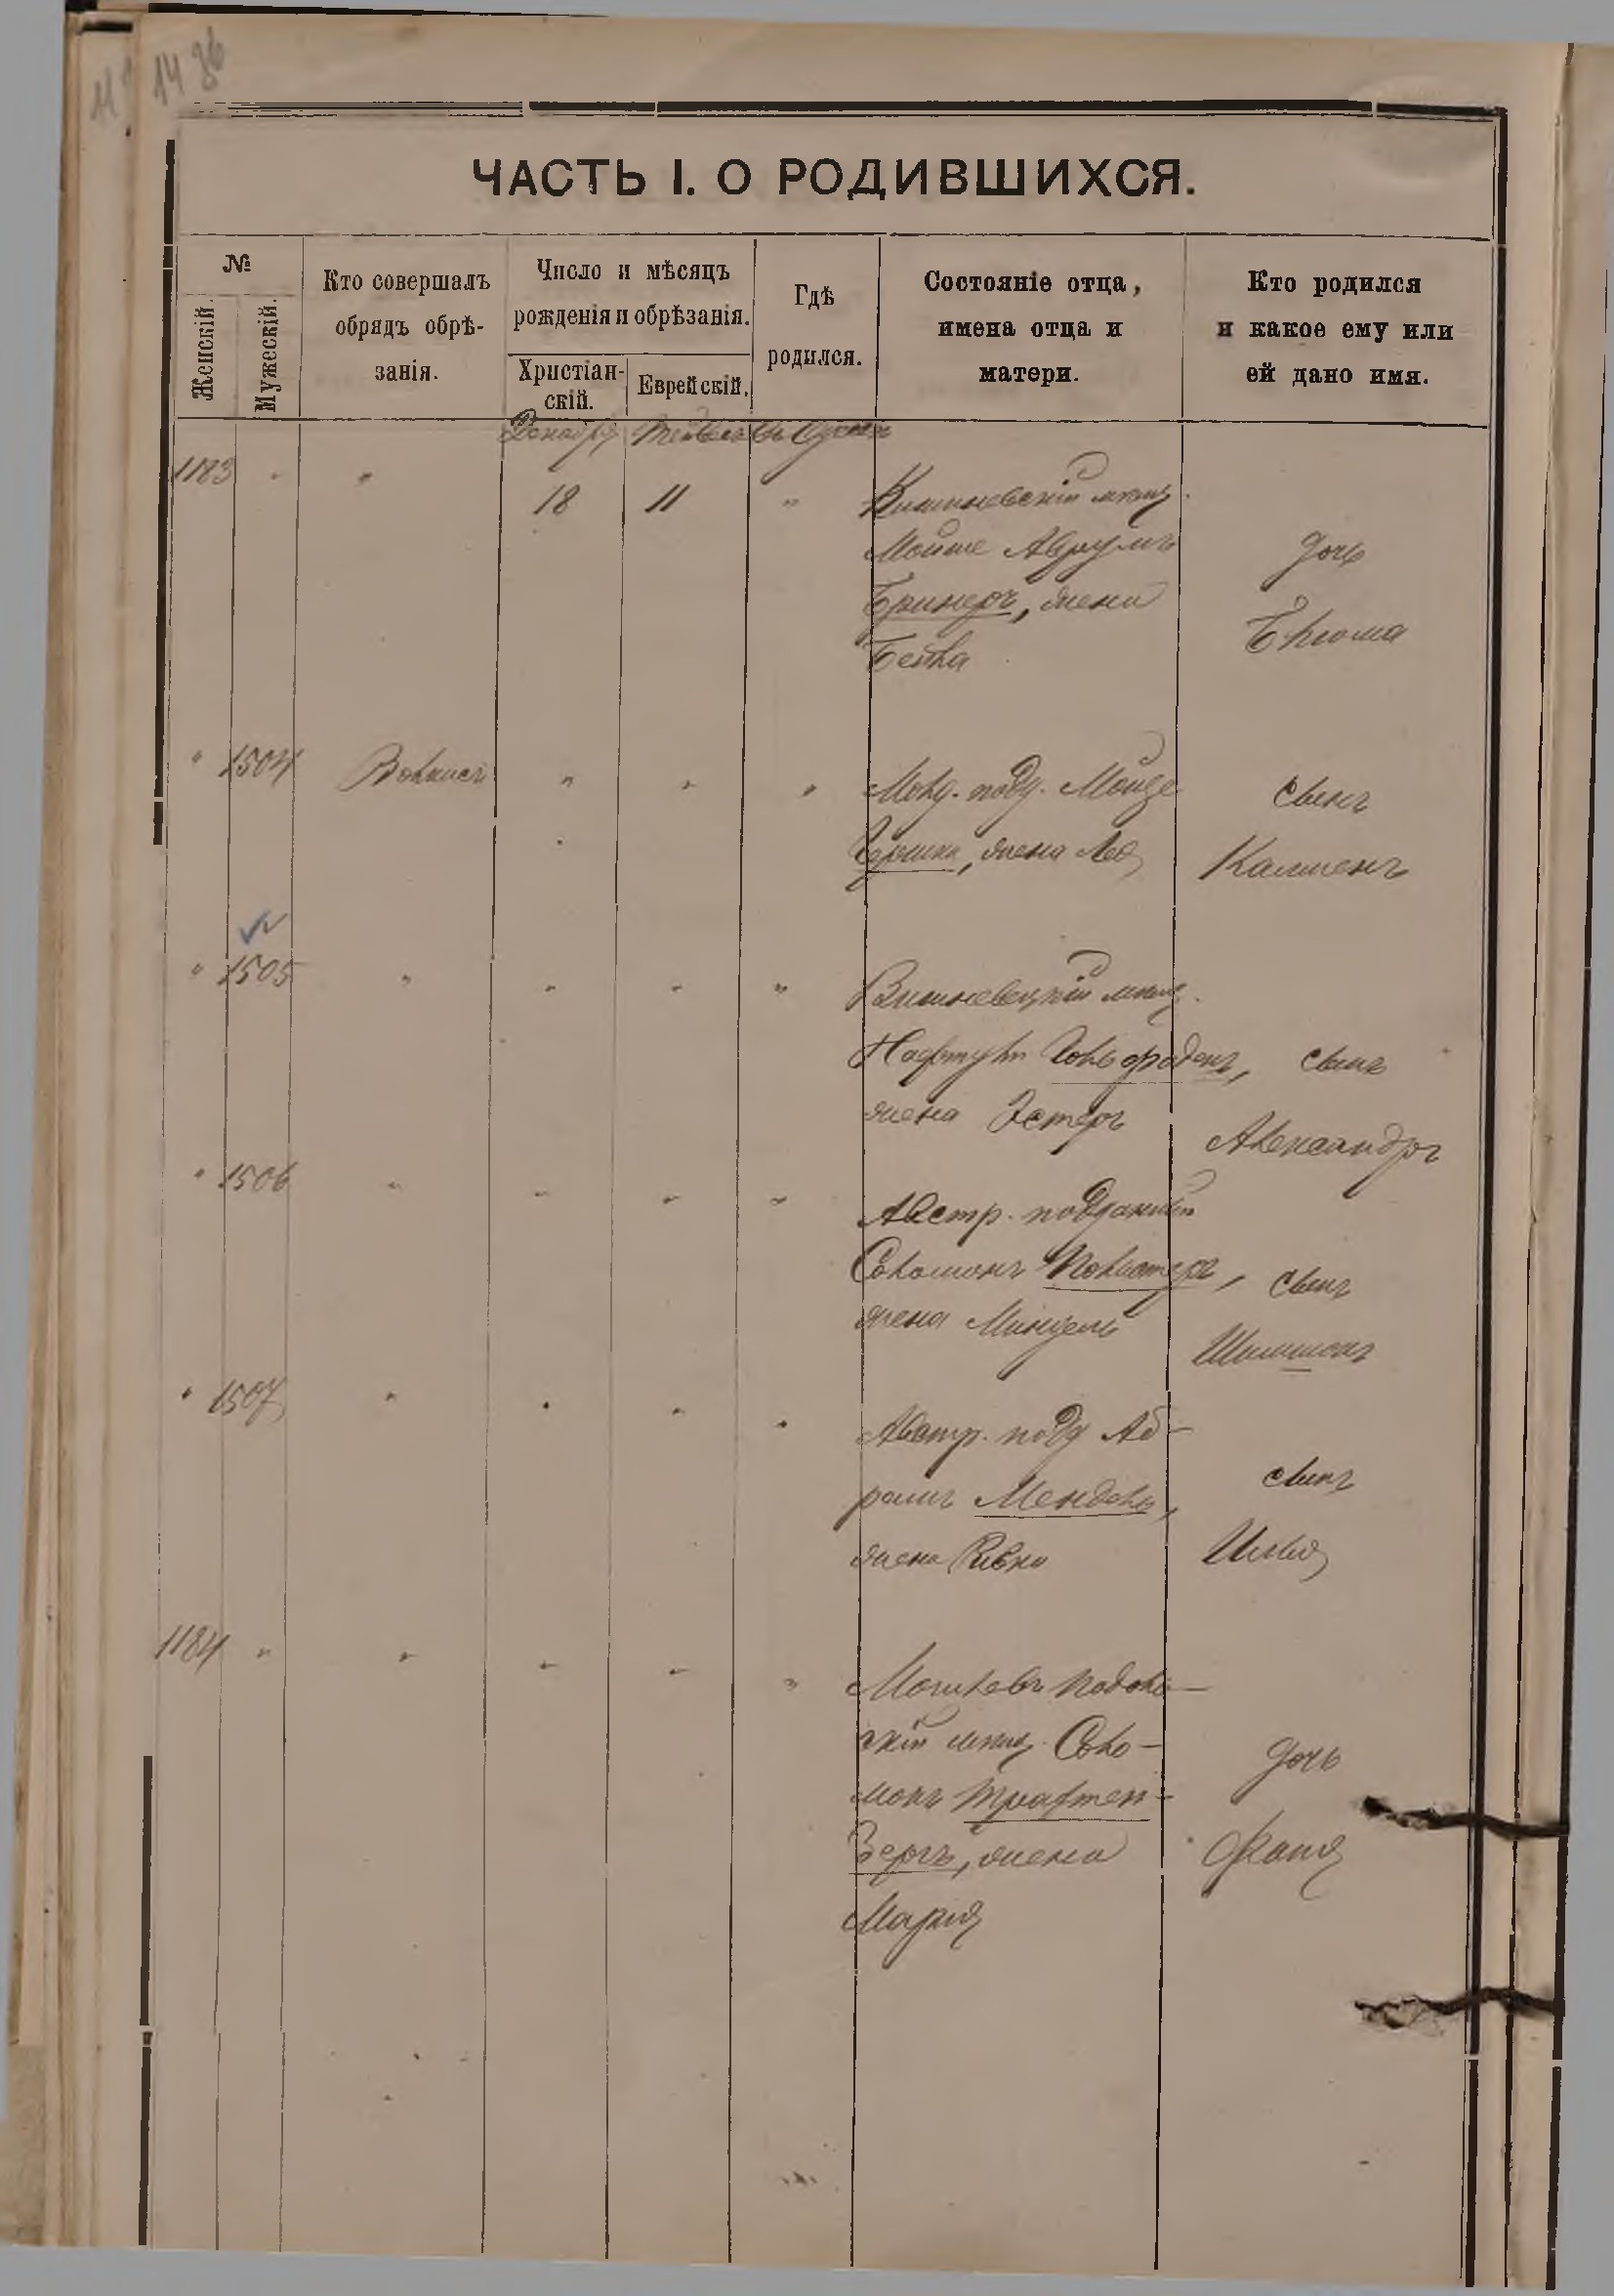 1436
ЧАСТЬ I. О РОДИВШИХСЯ.
№
Женскій.
Мужескій.
Кто совершалъ
обрядъ обрѣ-
занія.
Число и мѣсяцъ
рожденія и обрѣзанія.
Христіан-
скій.
Еврейскій.
Гдѣ
родился.
Состояніе отца,
имена отца и
матери.
Кто родился
и какое ему или
ей дано имя.
Декабрь
1183 " "
18 11 " Кишиневскій мѣщ.
Мойше Аврумъ
Бринеръ, жена
Бейла
дочь
Блюма
" 1504 " " "
Молд. подд. Мойзе
Гершка, жена Лея
сынъ
Калменъ
" 1505 " " " "
Вишневецкій мѣщ.
Нафтулъ Гольфаденъ,
жена Эстеръ
сынъ
Александръ
" 1506 " " " "
Австр. подданный
Соломонъ Польстеръ,
жена Миндель
сынъ
Шимшонъ
" 1507 " " " "
Австр. подд Аб-
рамъ Мендель,
жена Ривка
сынъ
Илья
1184 " " " " "
Могилевъ Подоль-
скій мѣщ. Соло-
монъ Трахтен-
бергъ, жена
Марія
дочь
Фаня